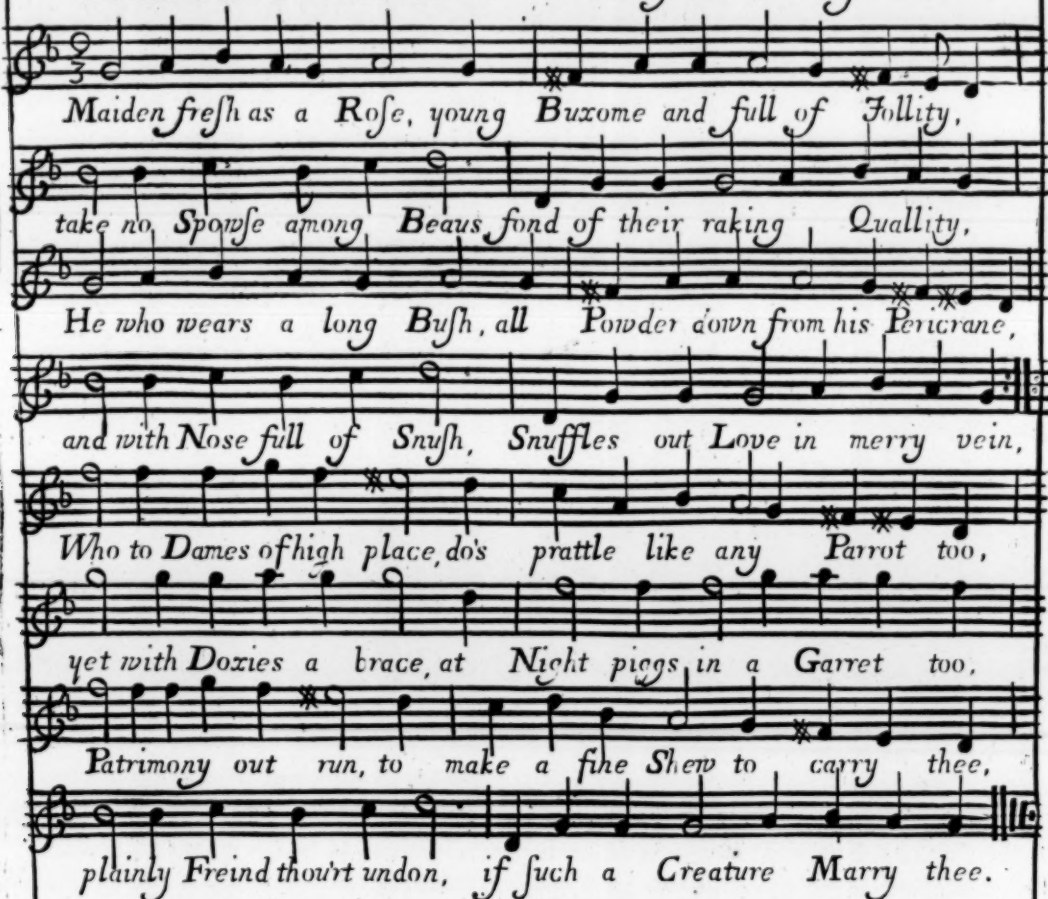 Maiden freſh as a Roſe, young Buxome and full of Jollity,
take no Spowſe among Beaus fond of their raking Quallity,
He who wears a long Buſh, all Powder down from his Pericrane,
and with Noſe full of Snuſh, Snuffles out Love in merry vein,
Who to Dames of high place, do's prattle like any Parrot too,
yet with Doxies a brace, at Night piggs in a Garret too.
Patrimony out run, to make a fine Shew to carry thee,
plainly Freind thou'rt undon, if ſuch a Creature Marry thee.